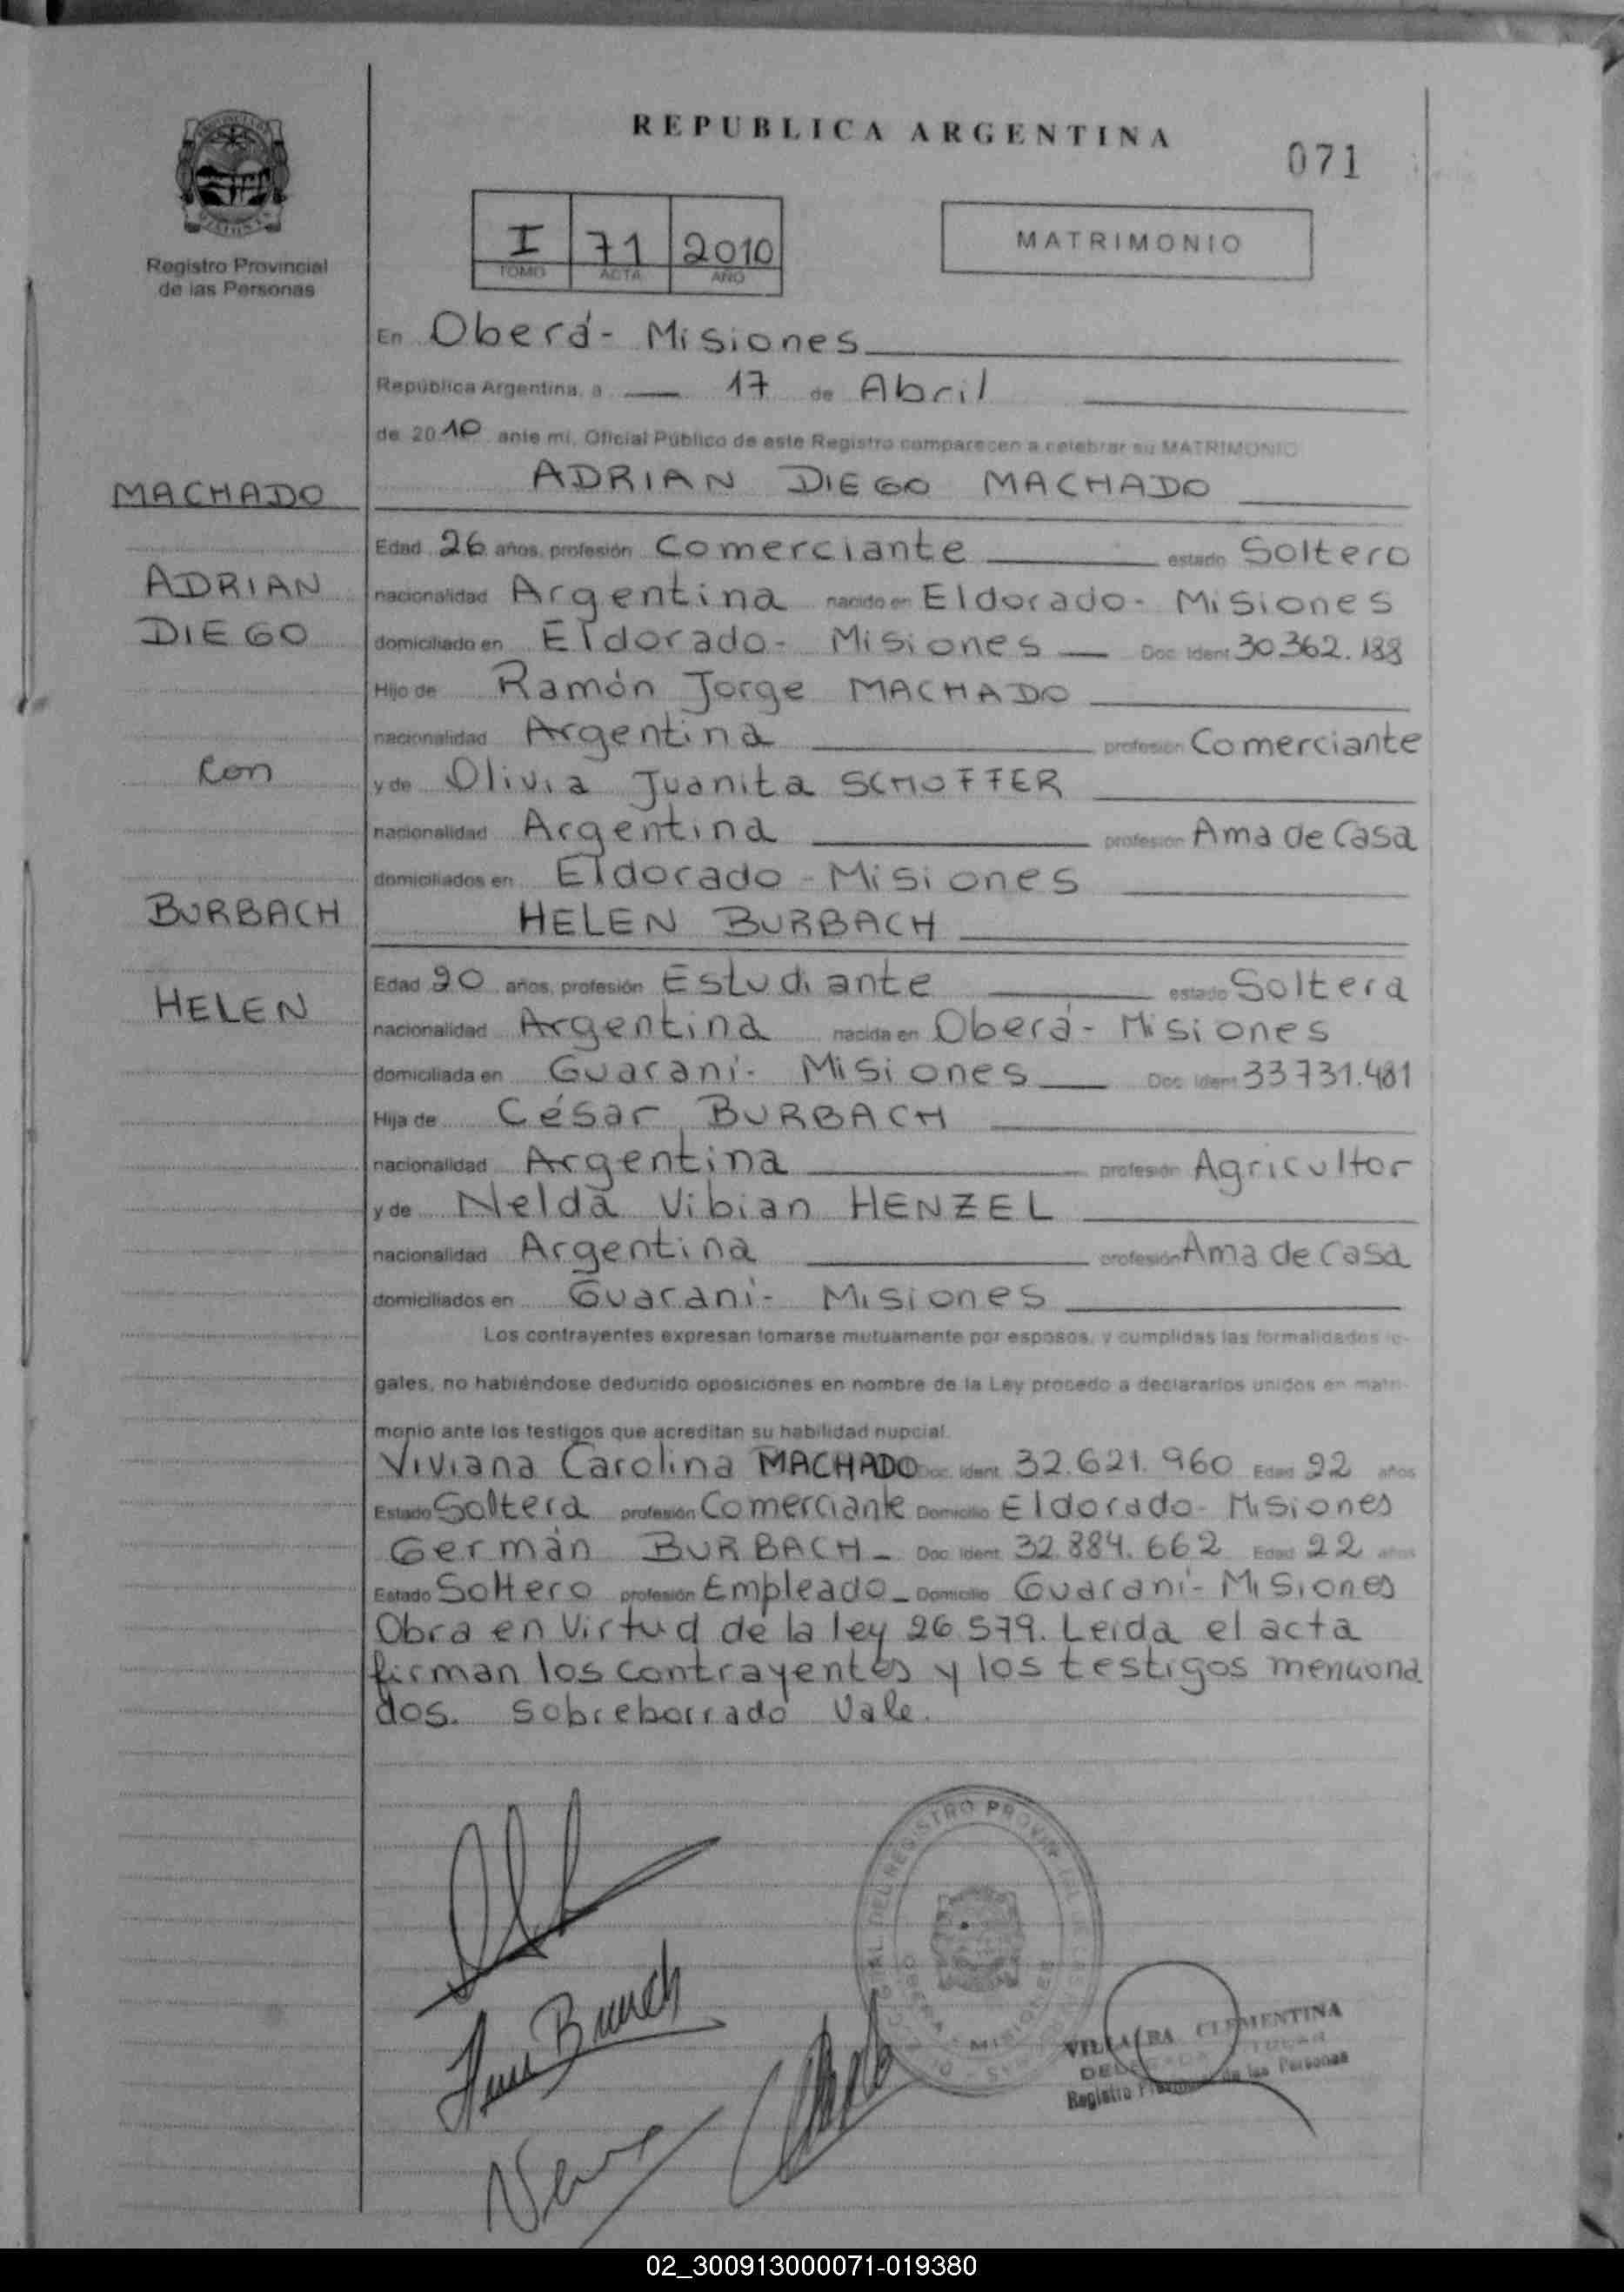 REPUBLICA ARGENTINA
071
Registro Provincial
de las Personas
I 71 2010
TOMO ACTA AÑO
MATRIMONIO
En Oberá - Misiones
República Argentina, a 17 de Abril
de 2010 ante mi, Oficial Público de este Registro comparecen a celebrar su MATRIMONIO
MACHADO
ADRIAN DIEGO MACHADO
Edad 26 años, profesión Comerciante estado Soltero
ADRIAN
nacionalidad Argentina nacido en Eldorado - Misiones
DIEGO
domiciliado en Eldorado - Misiones Doc. Ident. 30.362.188
Hijo de Ramón Jorge MACHADO
nacionalidad Argentina profesión Comerciante
con
y de Olivia Juanita SCHOFFER
nacionalidad Argentina profesión Ama de Casa
domiciliados en Eldorado - Misiones
BURBACH
HELEN BURBACH
Edad 20 años, profesión Estudiante estado Soltera
HELEN
nacionalidad Argentina nacida en Oberá - Misiones
domiciliada en Guaraní - Misiones Doc. Ident. 33731.481
Hija de César BURBACH
nacionalidad Argentina profesión Agricultor
y de Nelda Vibian HENZEL
nacionalidad Argentina profesión Ama de Casa
domiciliados en Guaraní - Misiones
Los contrayentes expresan tomarse mutuamente por esposos, y cumplidas las formalidades le-
gales, no habiéndose deducido oposiciones en nombre de la Ley procedo a declararlos unidos en matri-
monio ante los testigos que acreditan su habilidad nupcial.
Viviana Carolina MACHADO Doc. Ident. 32.621.960 Edad 22 años
Estado Soltera profesión Comerciante Domicilio Eldorado - Misiones
Germán BURBACH - Doc. Ident. 32.884.662 Edad 22 años
Estado Soltero profesión Empleado - Domicilio Guaraní - Misiones
Obra en Virtud de la ley 26 579. Leida el acta
firman los contrayentes y los testigos menciona
dos. sobreborrado Vale.
REGISTRO PROVINCIAL
OBERA - MISIONES
CLEMENTINA
Registro de las Personas
02_300913000071-019380